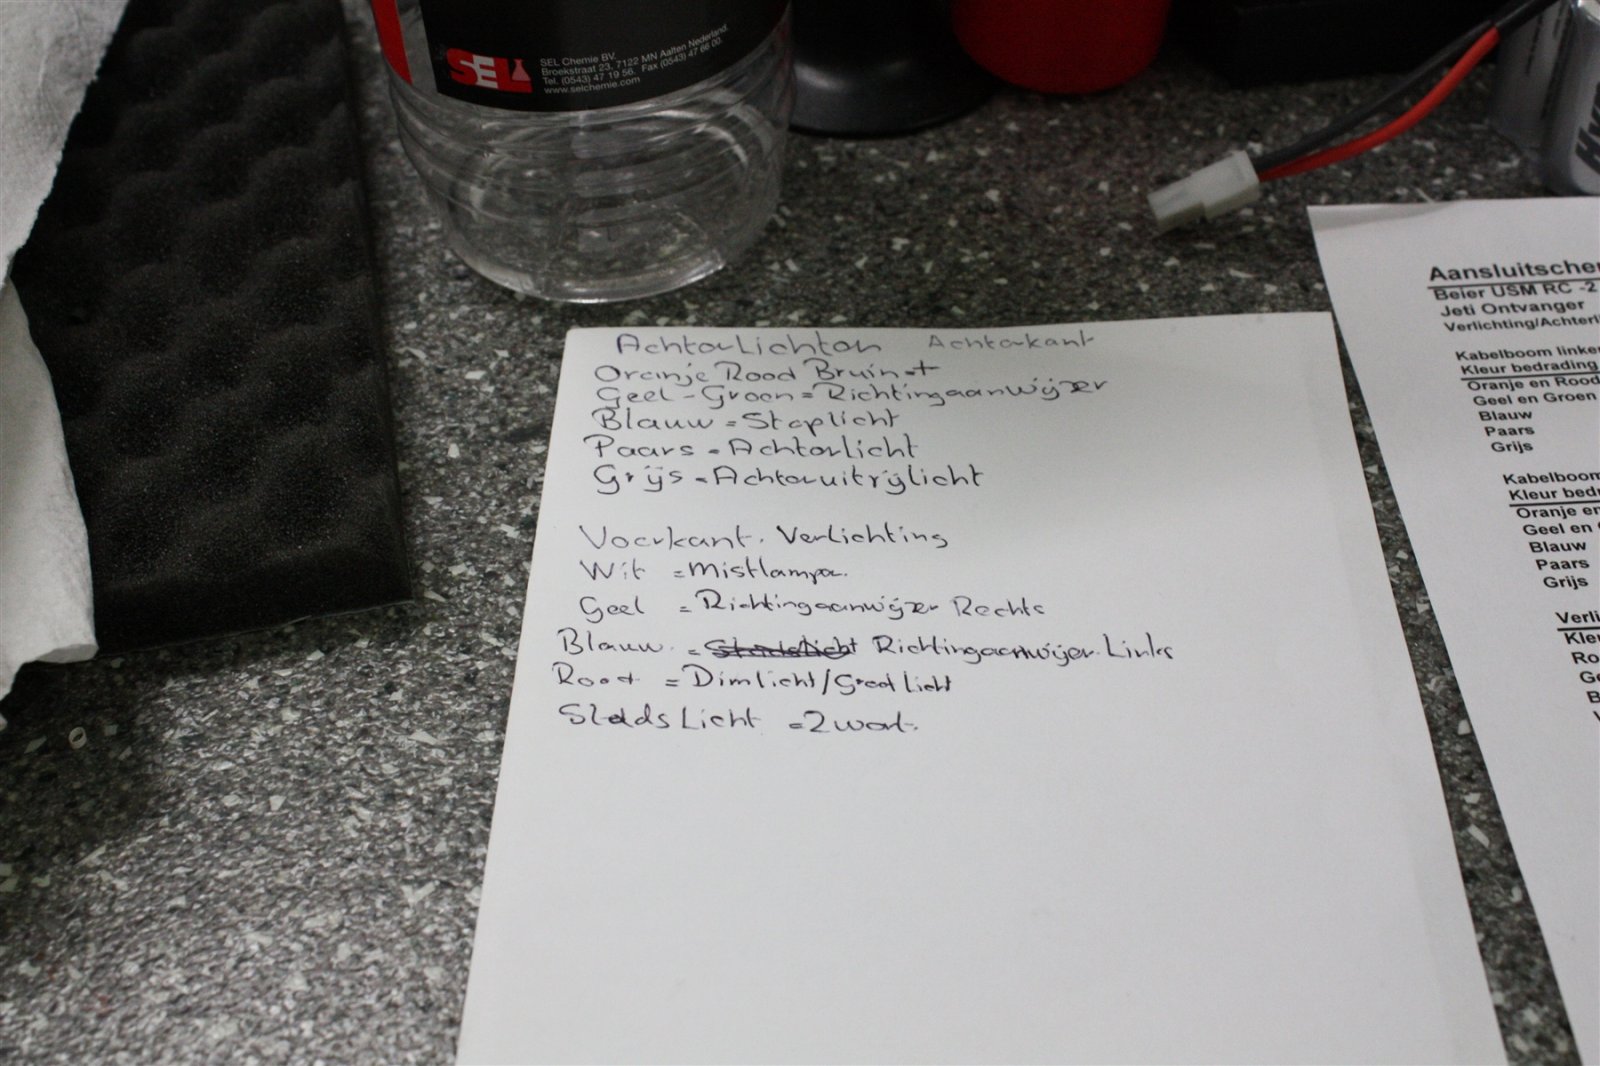 SEL
SEL Chemie BV.
Broekstraat 23, 7122 MN Aalten Nederland.
Tel. (0543) 47 19 56. Fax (0543) 47 66 00.
www.selchemie.com
Achterlichten Achterkant
Oranje Rood Bruin = +
Geel - Groen = Richtingaanwijzer
Blauw = Stoplicht
Paars = Achterlicht
Grijs = Achteruitrijlicht
Voorkant. Verlichting
Wit = Mistlampen.
Geel = Richtingaanwijzer Rechts
Blauw = Stadslicht Richtingaanwijzer Links
Rood = Dimlicht/Groot Licht
Stads Licht = Zwart.
Aansluitsche
Beier USM RC -2
Jeti Ontvanger
Verlichting/Achterli
Kabelboom linker
Kleur bedrading
Oranje en Rood
Geel en Groen
Blauw
Paars
Grijs
Kabelboom
Kleur bedr
Oranje en
Geel en
Blauw
Paars
Grijs
Verli
Kle
Ro
Ge
B